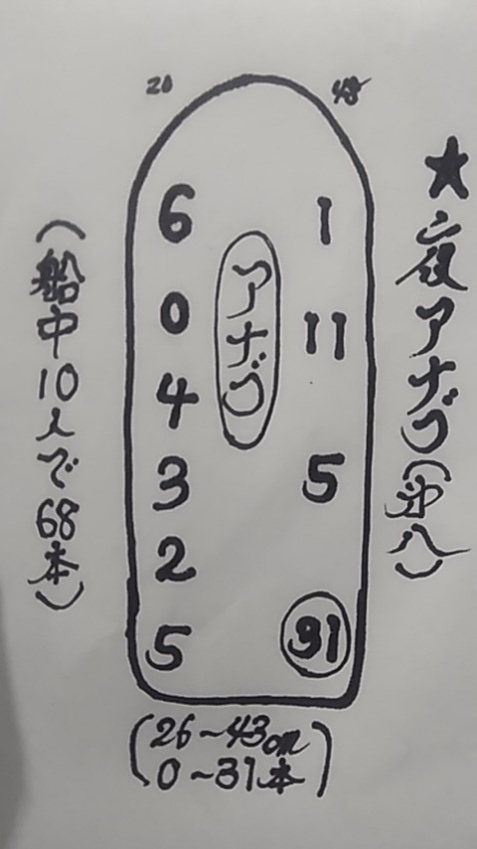 ★夜アナゴ(㐧八)
20
6
0
4
3
2
5
アナゴ
1
11
5
31
(船中10人で68本)
(26~43cm
0~31本)